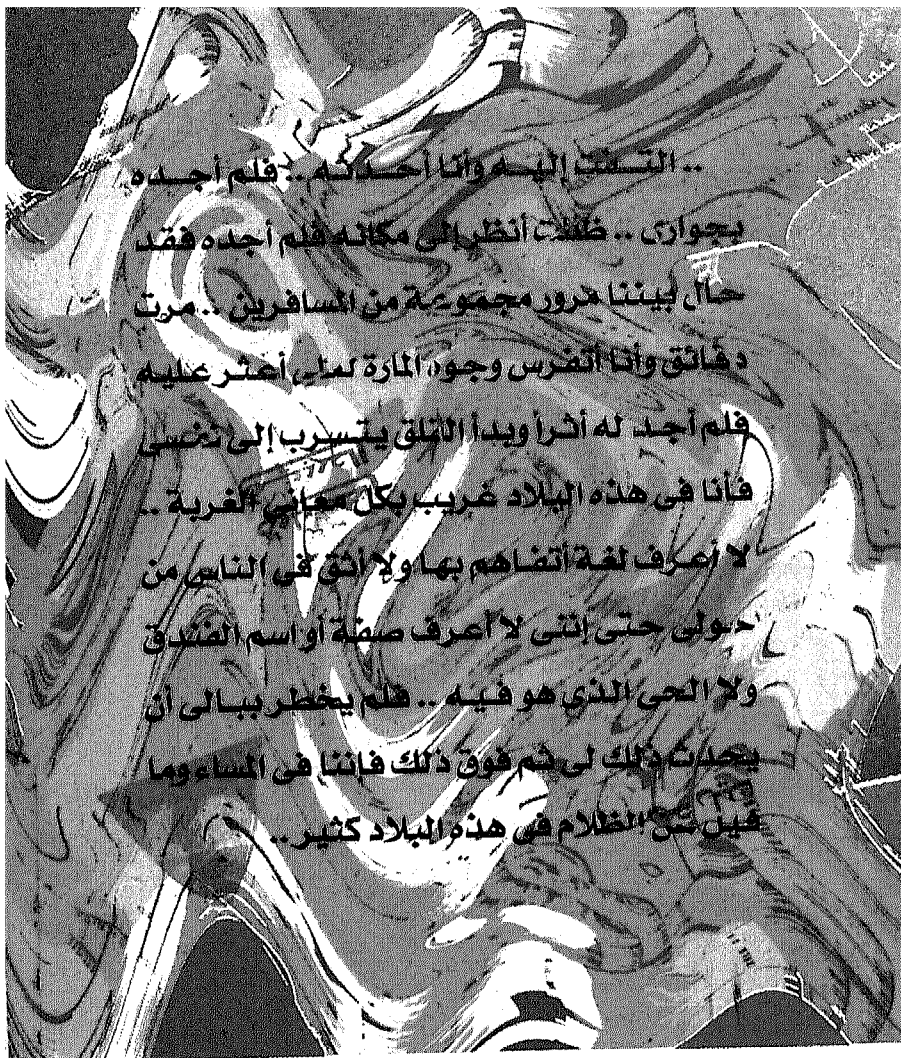 .. التفت إليه وأنا أحدثه .. فلم أجده
بجوارى .. ظللت أنظر إلى مكانه فلم أجده فقد
حال بيننا مرور مجموعة من المسافرين .. مرت
دقائق وأنا أتفرس وجوه المارة لعلى أعثر عليه
فلم أجد له أثراً وبدأ القلق يتسرب إلى نفسى
فأنا فى هذه البلاد غريب بكل معاني الغربة ..
لا أعرف لغة أتفاهم بها ولا أثق فى الناس من
حولى حتى إننى لا أعرف صفة أو اسم الفندق
ولا الحى الذي هو فيه .. فلم يخطر ببالى أن
يحدث ذلك لى ثم فوق ذلك فإننا فى المساء وما
قيل عن الظلام فى هذه البلاد كثير ..